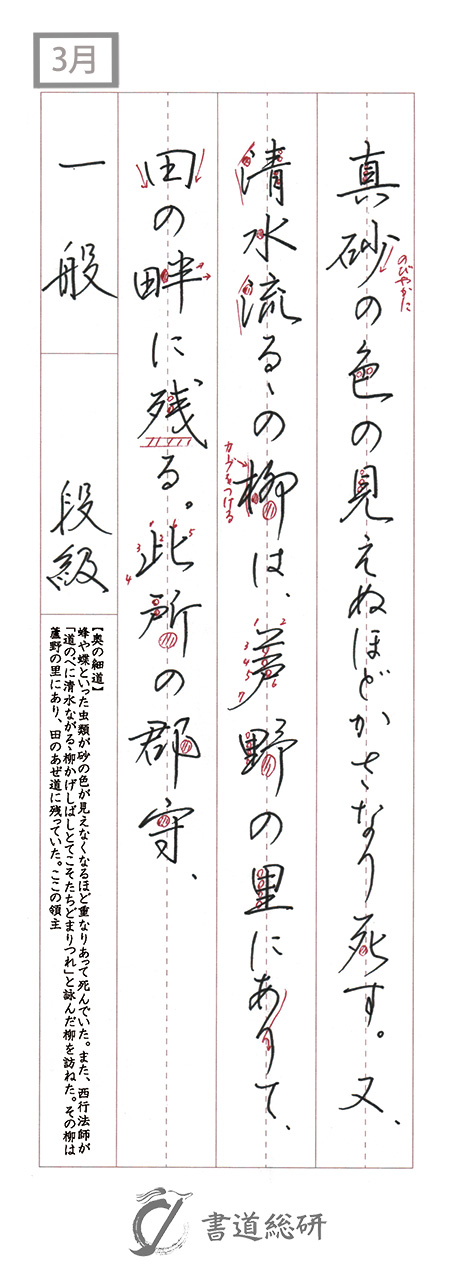 3月
真砂の色の見えぬほどかさなり死す。又、
のびやかに
清水流るゝの柳は、芦野の里にありて、
カーブをつける
1 2 3 4 5 6 7
田の畔に残る。此所の郡守、
1 2 3 4 5 6
一般
段級
【奥の細道】
蜂や蝶といった虫類が砂の色が見えなくなるほど重なりあって死んでいた。また、西行法師が
「道のべに清水ながるゝ柳かげしばしとてこそたちどまりつれ」と詠んだ柳を訪ねた。その柳は
蘆野の里にあり、田のあぜ道に残っていた。ここの領主
書道総研